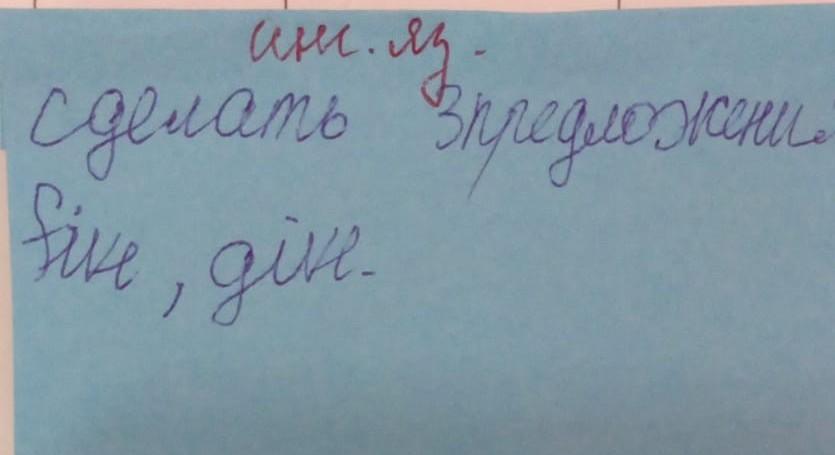 инг. яз.
сделать 3 предложени.
fike, dike.